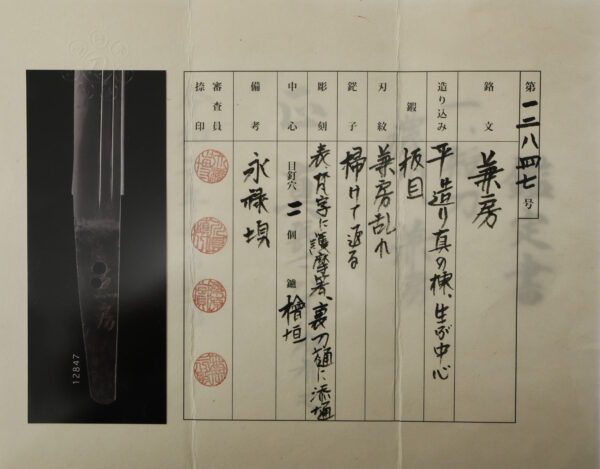 第一二八四七号
銘文 兼房
造り込み 平造り真の棟、生ぶ中心
鍛 板目
刃紋 兼房乱れ
鋩子 掃けて返る
彫刻 表、梵字に護摩箸、裏刀樋に添樋
中心 目釘穴 二 個 鑢 檜垣
備考 永禄頃
審査員捺印
兼房
12847